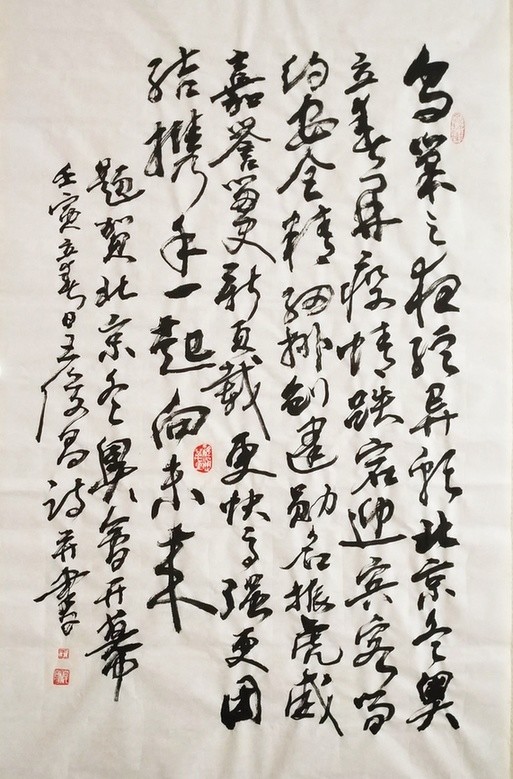 鸟巢之夜绽异彩北京冬奥
立春开疫情跌宕迎宾客如
约安全精细排创建勋名振虎威
嘉誉留史新页载更快高强更团
结携手一起向未来
题贺北京冬奥会开幕
壬寅立春日王俊昌诗并书